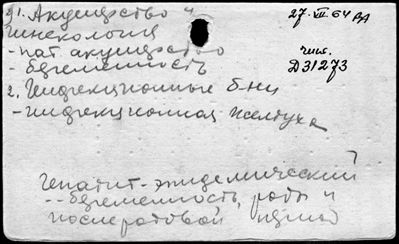 1. Акушерство и
гинекология
- пат. акушерство
- беременность
2. Инфекционные б-ни
- инфекционная желтуха
27.VII.64
чит.
Д31273
Гепатит эпидемический
-- беременность, роды и
послеродовой период